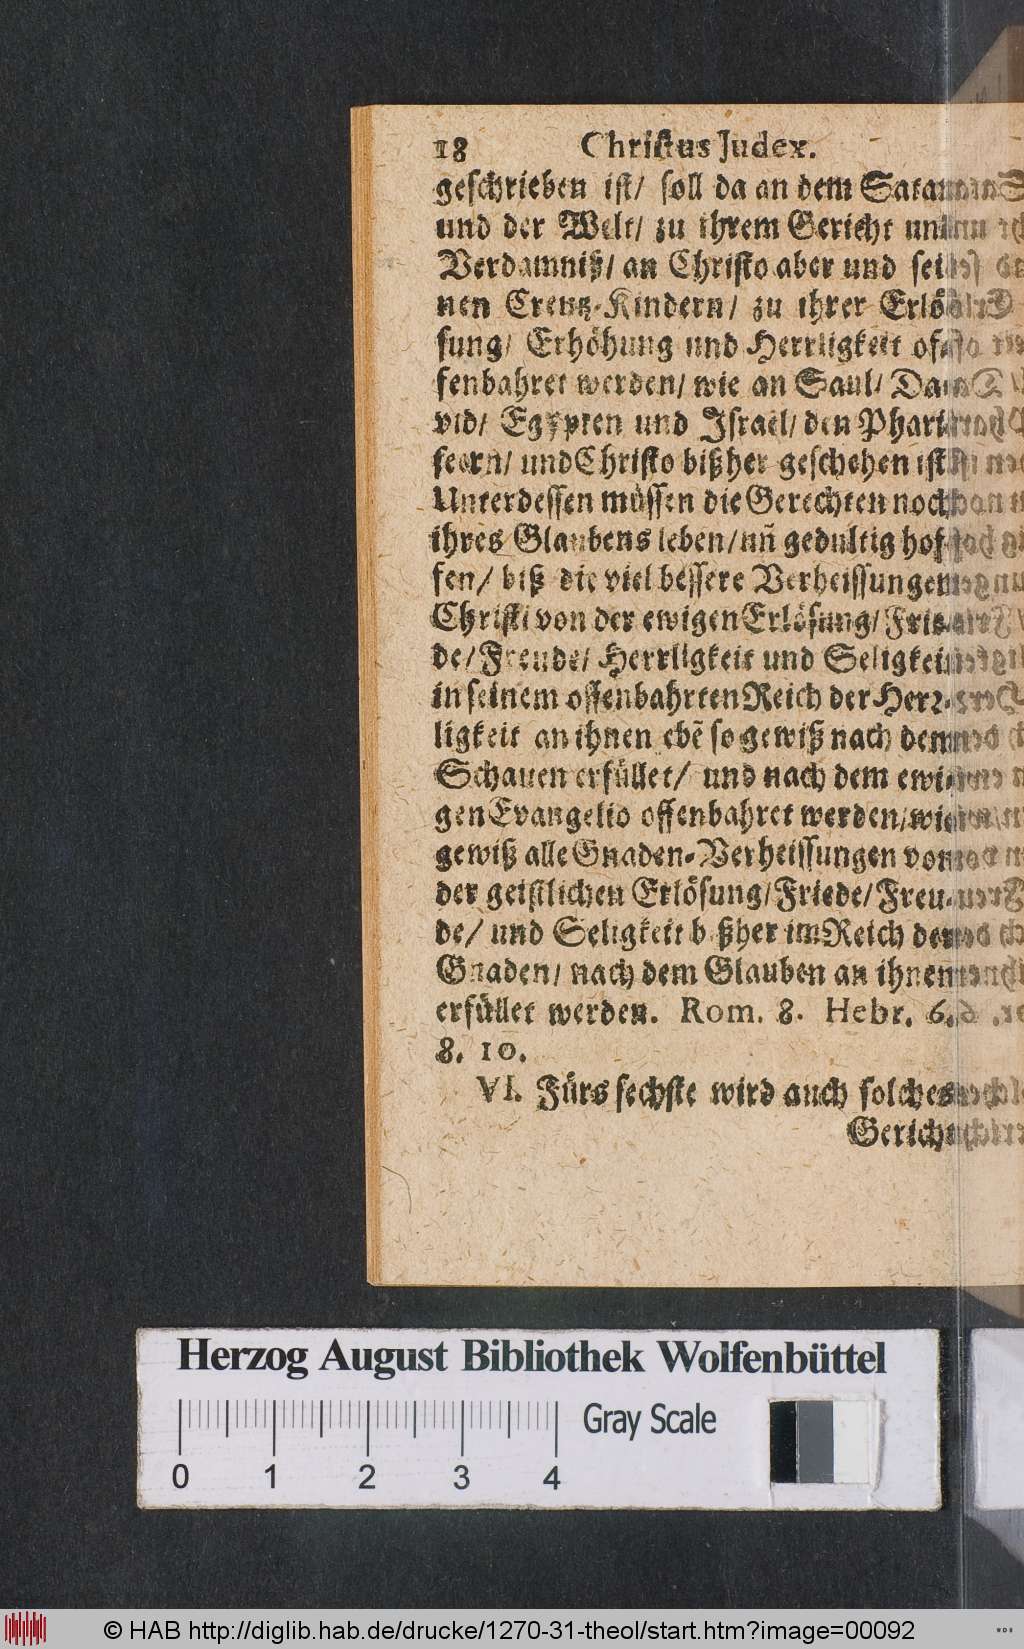 18 Christus Judex.
geschrieben ist/ soll da an dem Satanan
und der Welt/ zu ihrem Gericht un
Verdamniß/ an Christo aber und sei
nen Creutz-Kindern/ zu ihrer Erlö
sung/ Erhöhung und Herrligkeit of
fenbahret werden/ wie an Saul/ Da
vid/ Egypten und Israel/ den Phari
seern/ und Christo bißher geschehen ist
Unterdessen müssen die Gerechten noch
ihres Glaubens leben/ uñ gedultig hof
fen/ biß die viel bessere Verheissungen
Christi von der ewigen Erlösung/ Frie
de/ Freude/ Herrligkeit und Seligkei
in seinem offenbahrten Reich der Herr-
ligkeit an ihnen ebẽ so gewiß nach dem
Schauen erfüllet/ und nach dem ewi
gen Evangelio offenbahret werden/ wie
gewiß alle Gnaden-Verheissungen von
der geistlichen Erlösung/ Friede/ Freu-
de/ und Seligkeit bißher im Reich der
Gnaden/ nach dem Glauben an ihnen
erfüllet werden. Rom. 8. Hebr. 6.
8. 10.
VI. Fürs sechste wird auch solches
Gericht
Herzog August Bibliothek Wolfenbüttel
Gray Scale
0 1 2 3 4
© HAB http://diglib.hab.de/drucke/1270-31-theol/start.htm?image=00092